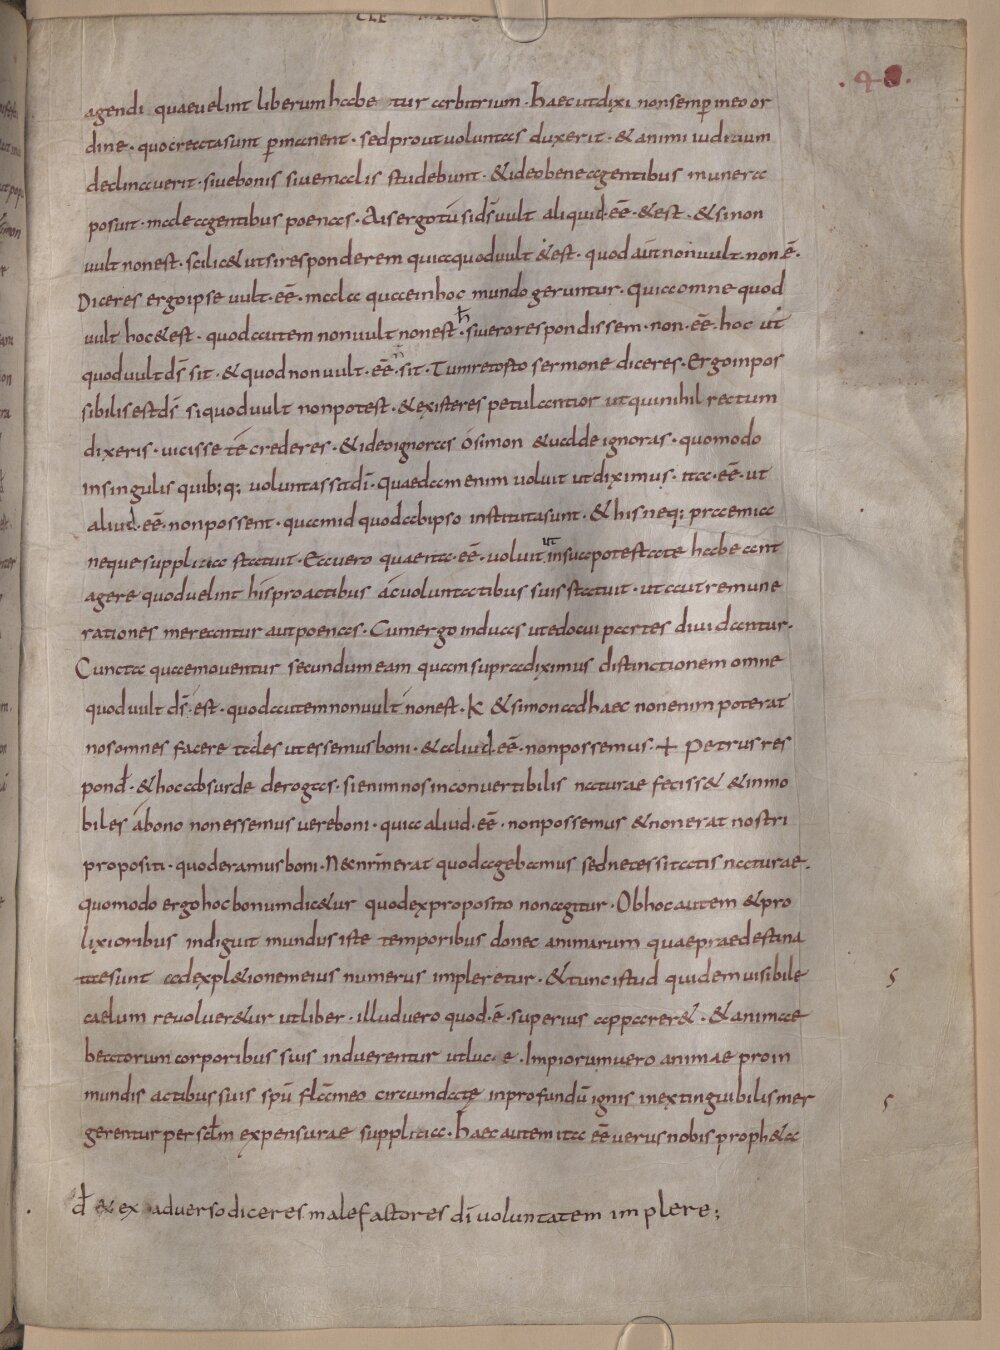 .48.
agendi quae uelint liberum habe tur arbitrium. Haec ut dixi non semp in eo or
dine. quo creata sunt pmanent. sed prout uoluntas duxerit. & animi iudicium
declinauerit. siue bonis siue malis studebunt. & ideo bene agentibus munera
posuit. male agentibus poenas. Ais ergo tū si ds̄ uult aliquid. eē. & est. & si non
uult non est. scilic& ut si responderem quia quod uult & est. quod aūt non uult. non ē.
Diceres ergo ipse uult. eē. mala quae in hoc mundo geruntur. quia omne quod
uult hoc & est. quod autem non uult non est ħ. si uero respondissem. non. eē. hoc ut
quod uult ds̄ sit. & quod non uult. eē. n̄ sit. Tum retosto sermone diceres. Ergo inpos
sibilis est ds̄ si quod uult non potest. & existeres petulantior ut qui nihil rectum
dixeris. uicisse té crederes. & ideo ignoras ó simon & ualde ignoras. quomodo
in singulis quib; q; uoluntas sit dī. quaedam enim uoluit ut diximus. ita. eē. ut
aliud. eē. non possent. quam id quod ab ipso instituta sunt. & his neq; praemia
neque supplicia statuit. Ea uero quae ita. eē. uoluit ut in sua potestate habeant
agere quod uelint his pro actibus ác uoluntatibus suis statuit. ut aut remune
rationes mereantur aut poenas. Cum ergo in duas ut edocui partes diuidantur.
Cuncta quae mouentur secundum eam quam supra diximus distinctionem omne
quod uult ds̄. est. quod autem non uult non est. K & simon ad haec non enim poterat
nos omnes facere tales ut essemus boni. & aliud. eē. non possemus. + Petrus res
pond̄. & hoc absurde derogas. si enim nos inconuertibilis naturae feciss& & inmo
biles á bono non essemus uere boni. quia aliud. eē. non possemus & non erat nostri
propositi. quod eramus boni. N& nr̄m erat quod agebamus sed necessitatis naturae.
quomodo ergo hoc bonum dic&ur quod ex proposito non agitur. Ob hoc autem & pro
lixioribus indiguit mundus iste temporibus donec animarum quae praedestina
tae sunt ad expl&ionem eius numerus impleretur. & tunc istud quidem uisibile
caelum reuoluer&ur ut liber. illud uero quod. ē. superius apparer&. & animae
beatorum corporibus suis induerentur ut luc. e. Impiorum uero animae pro in
mundis actibus suis spū flāmeo circumdatę in profundū ignis inextinguibilis mer
gerentur per sc̄lm expensurae supplicia. Haec autem ita eē uerus nobis proph&a
d̄ & ex aduerso diceres malefactores dī uoluntatem implere;